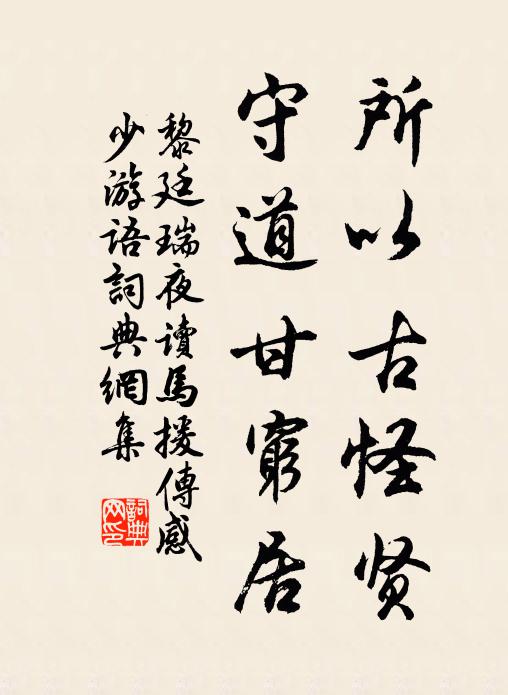 所以古怪贤
守道甘窮居
黎廷瑞夜讀馬援傳感
少游語詞典網集
詞典网印